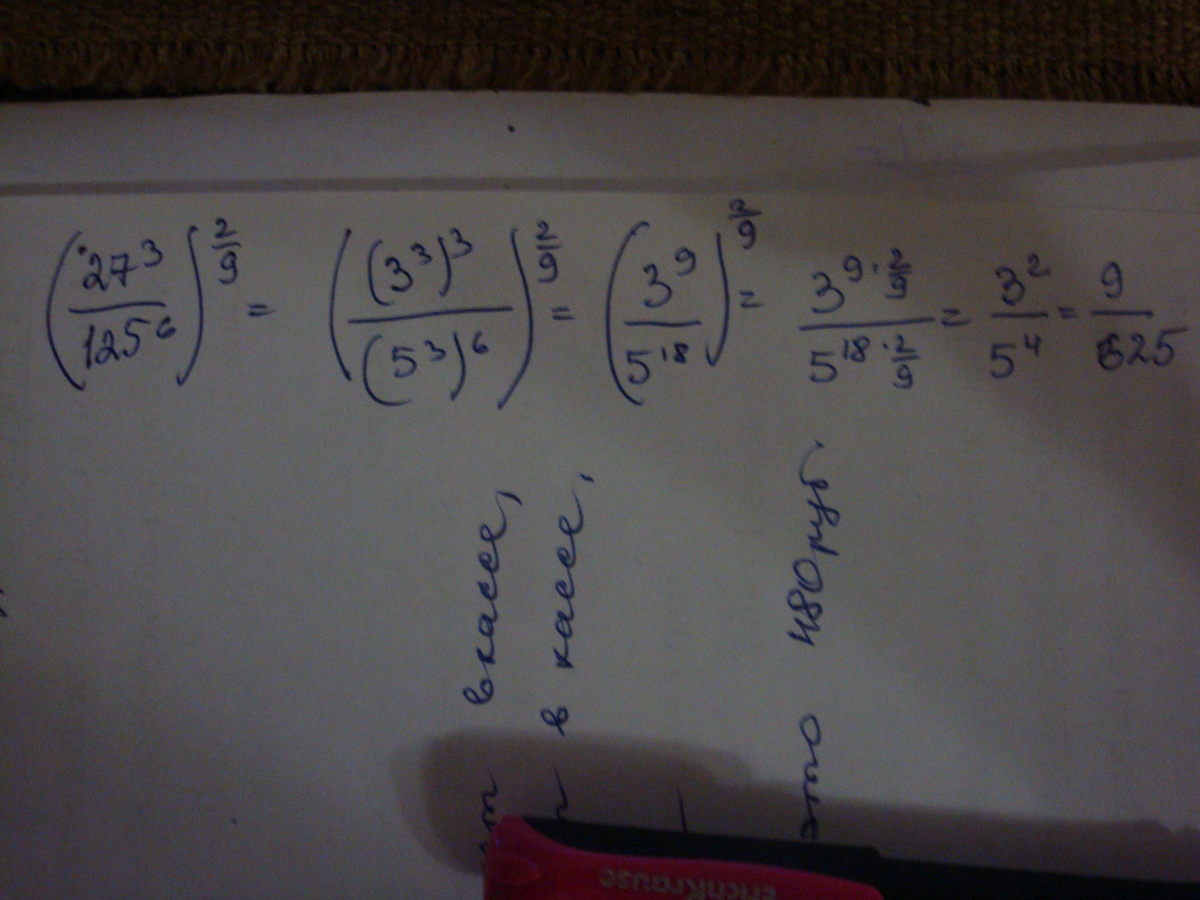 (27³/125⁶)^(2/9) = ((3³)³/(5³)⁶)^(2/9) = (3⁹/5¹⁸)^(2/9) = 3^(9·2/9)/5^(18·2/9) = 3²/5⁴ = 9/625
в кассе,
в кассе,
это 480 руб.
erichKrause